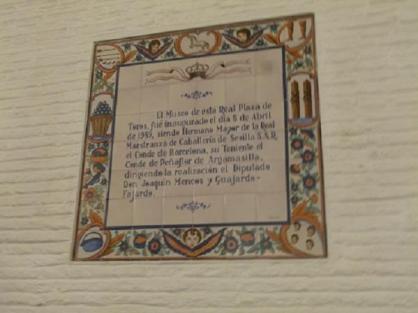 El Museo de esta Real Plaza de
Toros, fué inaugurado el dia 8 de Abril
de 1989, siendo Hermano Mayor de la Real
Maestranza de Caballería de Sevilla S.A.R.
el Conde de Barcelona, su Teniente el
Conde de Peñaflor de Argamasilla,
dirigiendo la realización el Diputado
Don Joaquin Mencos y Guajardo-
Fajardo.